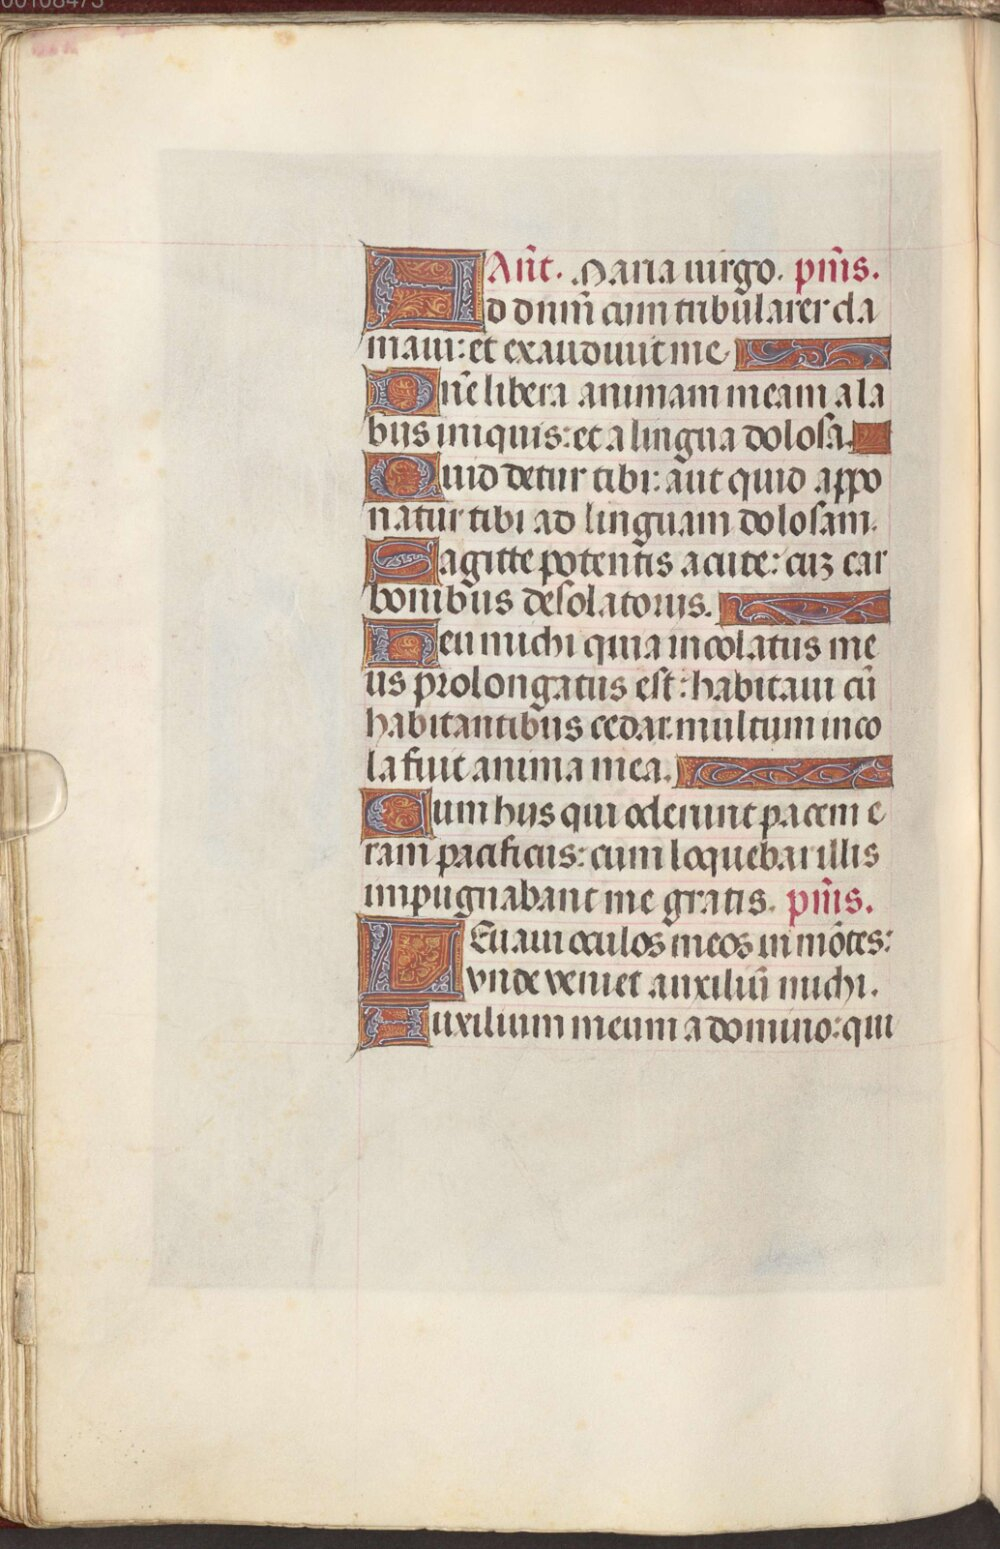 Añt. Maria uirgo. pm̃s.
Ad dnm̃ cum tribularer cla
maui: et exaudiuit me
Dnẽ libera animam meam a la
biis iniquis: et a lingua dolosa.
Quid detur tibi: aut quid appo
natur tibi ad linguam dolosam.
Sagitte potentis acute: cuȝ car
bonibus desolatoriis.
Heu michi quia incolatus me
us prolongatus est: habitaui cũ
habitantibus cedar: multum inco
la fuit anima mea.
Cum hiis qui oderunt pacem e
ram pacificus: cum loquebar illis
impugnabant me gratis. pm̃s.
Leuaui oculos meos in mõtes:
vnde veniet auxiliũ michi.
Auxilium meum a domino: qui